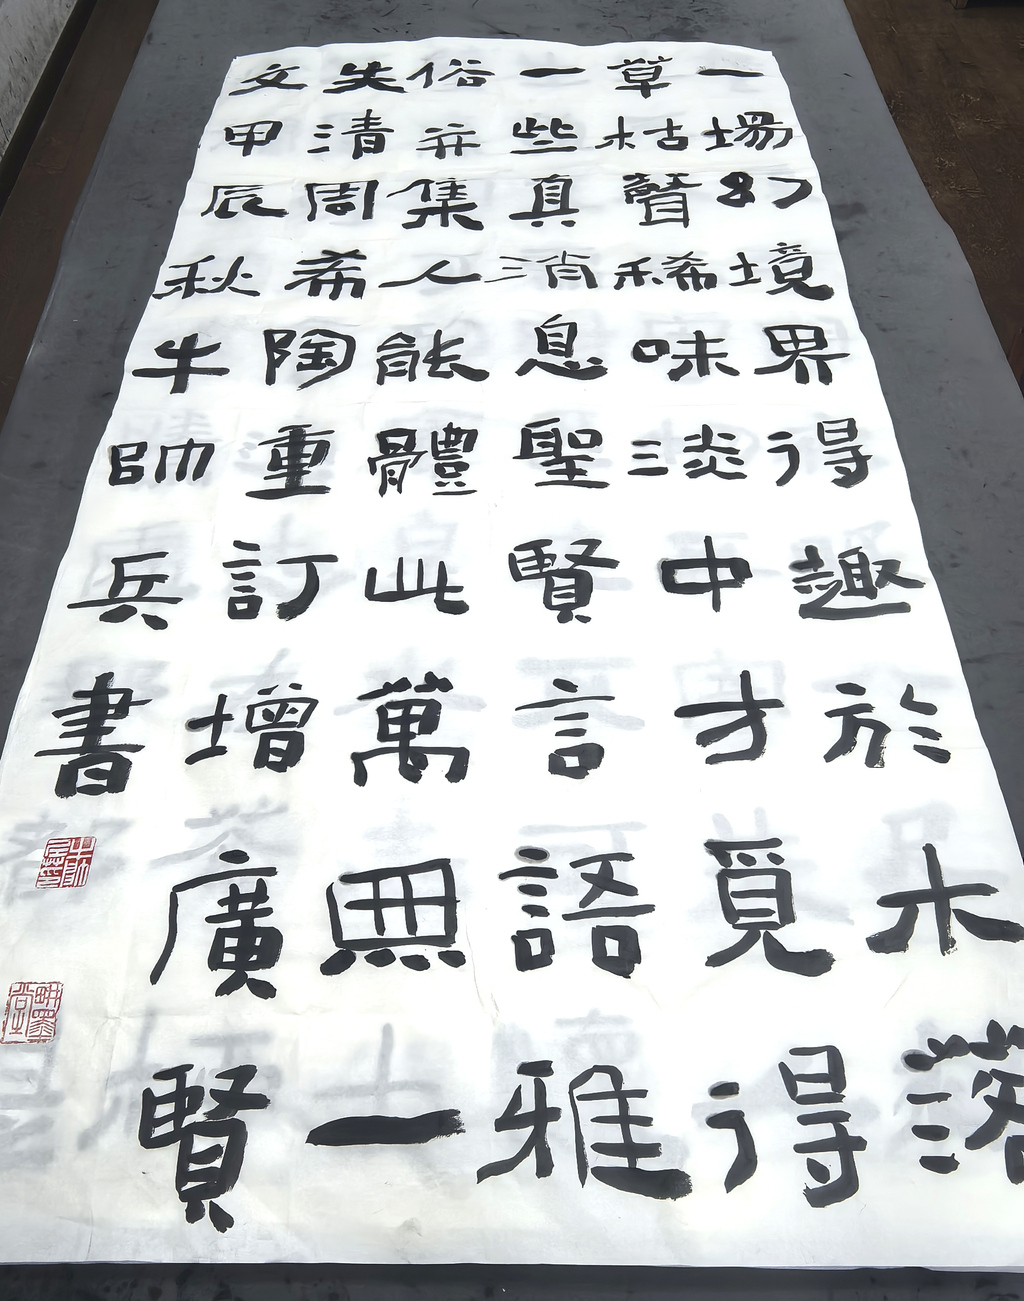 一場幻境界得趣於木落
草枯聲稀味淡中才覓得
一些真消息聖賢言語雅
俗并集人能體此萬無一
失清周希陶重訂增廣賢
文甲辰秋牛帥兵書